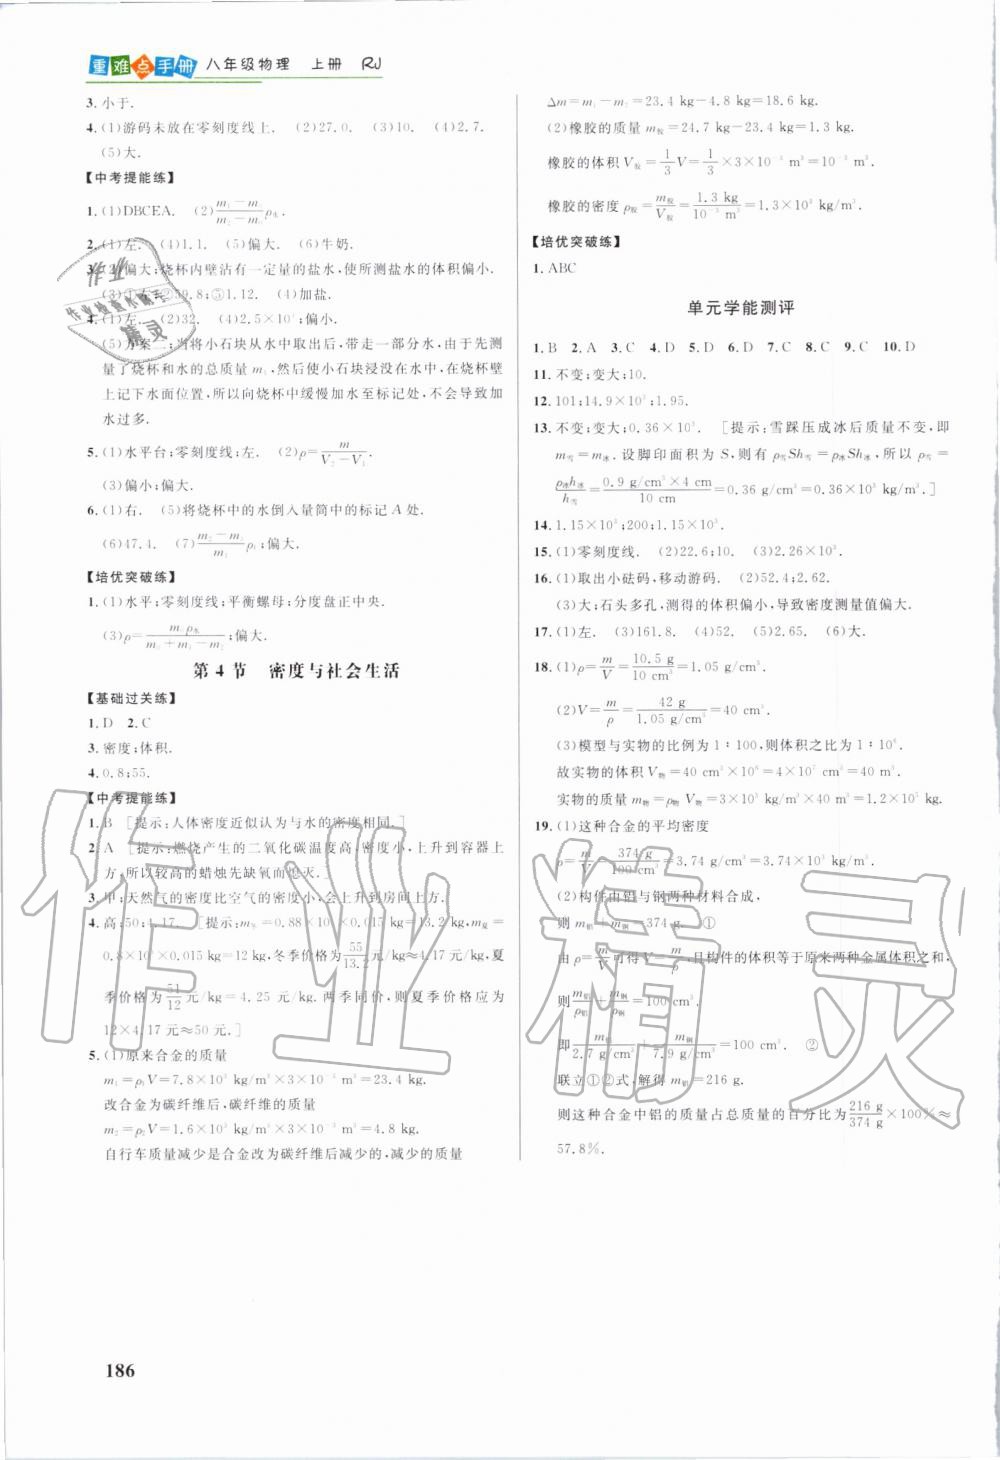 重难点手册 八年级物理 上册 RJ
3. 小于.
4. (1)游码未放在零刻度线上. (2)27.0. (3)10. (4)2.7.
(5)大.
【中考提能练】
1. (1)DBCEA. (2)
2. (1)左. (4)1.1. (5)偏大. (6)牛奶.
3. (2)偏大;烧杯内壁沾有一定量的盐水,使所测盐水的体积偏小.
(3)①左;②59.8;⑤1.12. (4)加盐.
4. (1)左. (2)32. (4)2.5×10³;偏小.
(5)方案二;当将小石块从水中取出后,带走一部分水,由于先测
量了烧杯和水的总质量 m₁,然后使小石块浸没在水中,在烧杯壁
上记下水面位置,所以向烧杯中缓慢加水至标记处,不会导致加
水过多.
5. (1)水平台;零刻度线;左. (2)ρ=m/(V₂−V₁)
(3)偏小;偏大.
6. (1)右. (5)将烧杯中的水倒入量筒中的标记 A 处.
(6)47.4. (7) ;偏大.
【培优突破练】
1. (1)水平;零刻度线;平衡螺母;分度盘正中央.
(3)ρ= ;偏大.
第 4 节 密度与社会生活
【基础过关练】
1. D 2. C
3. 密度;体积.
4. 0.8;55.
【中考提能练】
1. B [提示:人体密度近似认为与水的密度相同.]
2. A [提示:燃烧产生的二氧化碳温度高,密度小,上升到容器上
方,所以较高的蜡烛先缺氧而熄灭.]
3. 甲;天然气的密度比空气的密度小,会上升到天花板.
4. 高;50;4.17. [提示:m冬=0.88×10³×0.015 kg=13.2 kg,m夏=
0.8×10³×0.015 kg=12 kg,冬季价格为55/13.2元/kg≈4.17元/kg,夏
季价格为51/12元/kg=4.25 元/kg,两季同价,则夏季价格应为
12×4.17 元≈50 元.]
5. (1)原来合金的质量
m₁=ρ₁V=7.8×10³ kg/m³×3×10⁻³ m³=23.4 kg.
改合金为碳纤维后,碳纤维的质量
m₂=ρ₂V=1.6×10³ kg/m³×3×10⁻³ m³=4.8 kg.
自行车质量减少是合金改为碳纤维后减少的,减少的质量
Δm=m₁−m₂=23.4 kg−4.8 kg=18.6 kg.
(2)橡胶的质量 m胶=24.7 kg−23.4 kg=1.3 kg.
橡胶的体积 V胶=1/3V=1/3×3×10⁻³ m³=10⁻³ m³.
橡胶的密度 ρ胶=m胶/V胶=1.3 kg/10⁻³ m³=1.3×10³ kg/m³.
【培优突破练】
1. ABC
单元学能测评
1. B 2. A 3. C 4. D 5. D 6. D 7. C 8. C 9. C 10. D
11. 不变;变大;10.
12. 101;14.9×10³;1.95.
13. 不变;变大;0.36×10³. [提示:雪踩压成冰后质量不变,即
m雪=m冰.设脚印面积为 S,则有 ρ雪Sh雪=ρ冰Sh冰,所以 ρ雪=
ρ冰h冰/h雪=0.9 g/cm³×4 cm/10 cm=0.36 g/cm³=0.36×10³ kg/m³.]
14. 1.15×10³;200;1.15×10³.
15. (1)零刻度线. (2)22.6;10. (3)2.26×10³.
16. (1)取出小砝码,移动游码. (2)52.4;2.62.
(3)大;石头多孔,测得的体积偏小,导致密度测量值偏大.
17. (1)左. (3)161.8. (4)52. (5)2.65. (6)大.
18. (1)ρ=m/V=10.5 g/10 cm³=1.05 g/cm³.
(2)V=m/ρ=42 g/1.05 g/cm³=40 cm³.
(3)模型与实物的比例为 1∶100,则体积之比为 1∶10⁶.
故实物的体积 V物=40 cm³×10⁶=4×10⁷ cm³=40 m³.
实物的质量 m物=ρ物 V物=3×10³ kg/m³×40 m³=1.2×10⁵ kg.
19. (1)这种合金的平均密度
ρ=m/V=374 g/100 cm³=3.74 g/cm³=3.74×10³ kg/m³.
(2)构件由铝与钢两种材料合成,
则 m铝+m钢=374 g. ①
由 ρ=m/V可得 V=m/ρ,且构件的体积等于原来两种金属体积之和,
则m铝/ρ铝+m钢/ρ钢=100 cm³,
即m铝/2.7 g/cm³+m钢/7.9 g/cm³=100 cm³. ②
联立①②式,解得 m铝=216 g.
则这种合金中铝的质量占总质量的百分比为216 g/374 g×100%≈
57.8%.
186
作业精灵